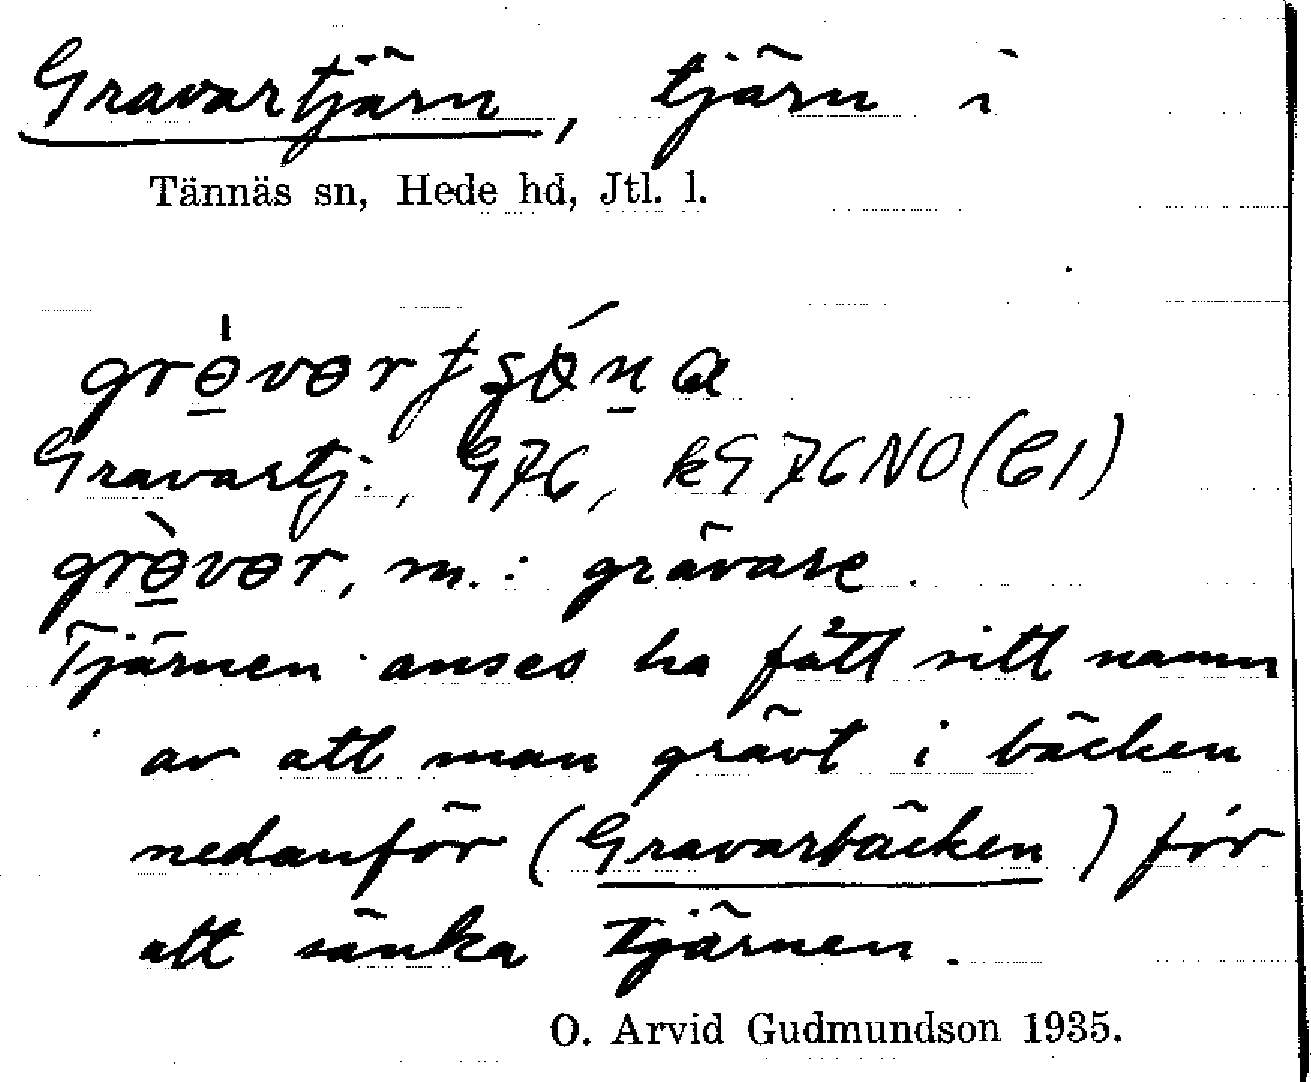 Gravartjärn, tjärn i
Tännäs sn, Hede hd, Jtl. l.
Gravartj:, G76, kG76NO(C1)
grèvər, m.: grävare.
Tjärnen anses ha fått sitt namn
av att man grävt i bäcken
nedanför (Gravarbäcken) för
att sänka Tjärnen.
O. Arvid Gudmundson 1935.